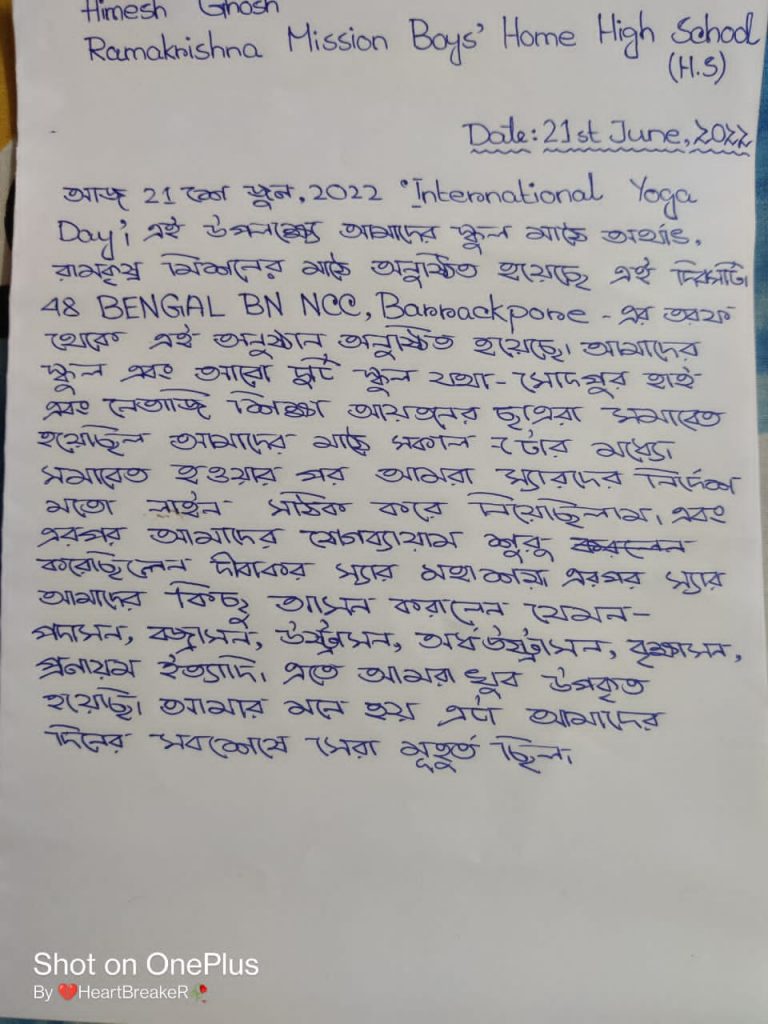 Himesh Ghosh
Ramakrishna Mission Boys' Home High School
(H.S)
Date: 21st June, 2022
আজ 21 শে জুন, 2022 'International Yoga
Day'। এই উপলক্ষ্যে আমাদের স্কুল মাঠে অর্থাৎ,
রামকৃষ্ণ মিশনের মাঠে অনুষ্ঠিত হয়েছে এই দিনটি।
48 BENGAL BN NCC, Barrackpore - এর তরফ
থেকে এই অনুষ্ঠান অনুষ্ঠিত হয়েছে। আমাদের
স্কুল এবং আরো দুটি স্কুল যথা - সোদপুর হাই
এবং নেতাজি শিক্ষা আয়তনের ছাত্ররা সমাবেত
হয়েছিল আমাদের মাঠে সকাল ৭টার মধ্যে।
সমাবেত হওয়ার পর আমরা স্যারদের নির্দেশ
মতো লাইন সঠিক করে নিয়েছিলাম। এবং
এরপর আমাদের যোগব্যায়াম শুরু করলেন
করেছিলেন দীবাকর স্যার মহাশয়। এরপর স্যার
আমাদের কিছু আসন করালেন যেমন-
পদাসন, বজ্রাসন, উষ্ট্রাসন, অর্ধউষ্ট্রাসন, বৃক্ষাসন,
প্রনায়ম ইত্যাদি। এতে আমরা খুব উপকৃত
হয়েছি। আমার মনে হয় এটা আমাদের
দিনের সবশেষে সেরা মূহুর্ত ছিল।
Shot on OnePlus
By ❤️HeartBreakeR🥀